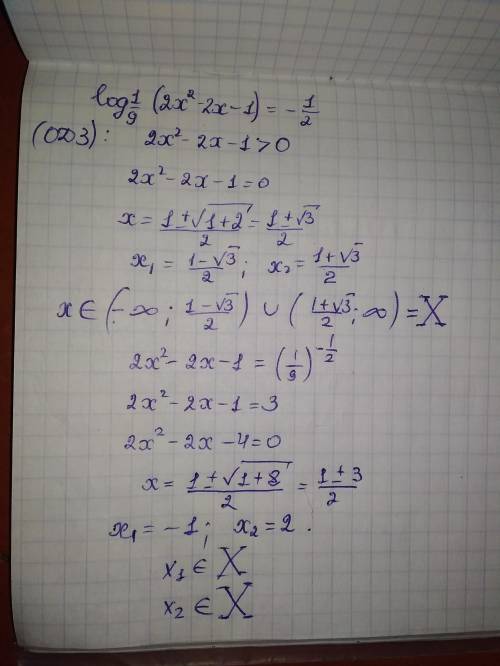 log 1/9 (2x² - 2x - 1) = - 1/2
(ОДЗ): 2x² - 2x - 1 > 0
2x² - 2x - 1 = 0
x = (1 ± √(1+2))/2 = (1 ± √3)/2
x₁ = (1-√3)/2 ; x₂ = (1+√3)/2
x ∈ (-∞ ; (1-√3)/2) ∪ ((1+√3)/2 ; ∞) = X
2x² - 2x - 1 = (1/9)^(-1/2)
2x² - 2x - 1 = 3
2x² - 2x - 4 = 0
x = (1 ± √(1+8))/2 = (1 ± 3)/2
x₁ = -1 ; x₂ = 2 .
x₁ ∈ X
x₂ ∈ X